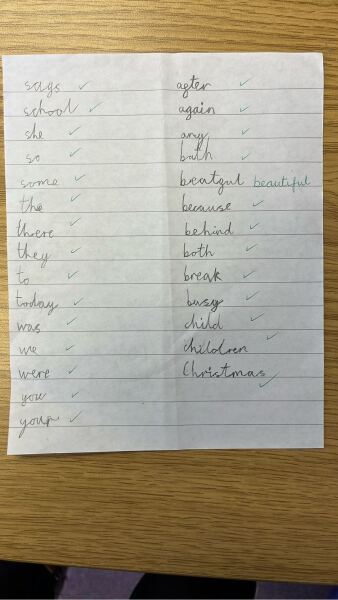 says
school
she
so
some
the
there
they
to
today
was
we
were
you
your
after
again
any
bath
beatful beautiful
because
behind
both
break
busy
child
children
Christmas